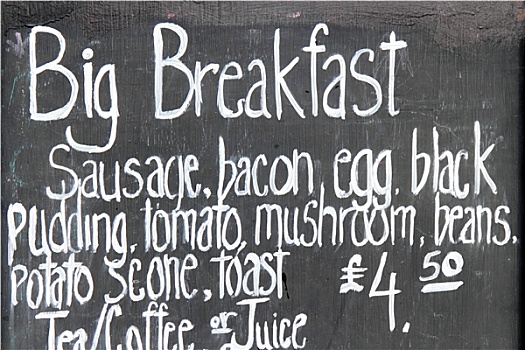 Big Breakfast
Sausage, bacon, egg, black
pudding, tomato, mushroom, beans,
potato scone, toast £4.50
Tea/Coffee or Juice